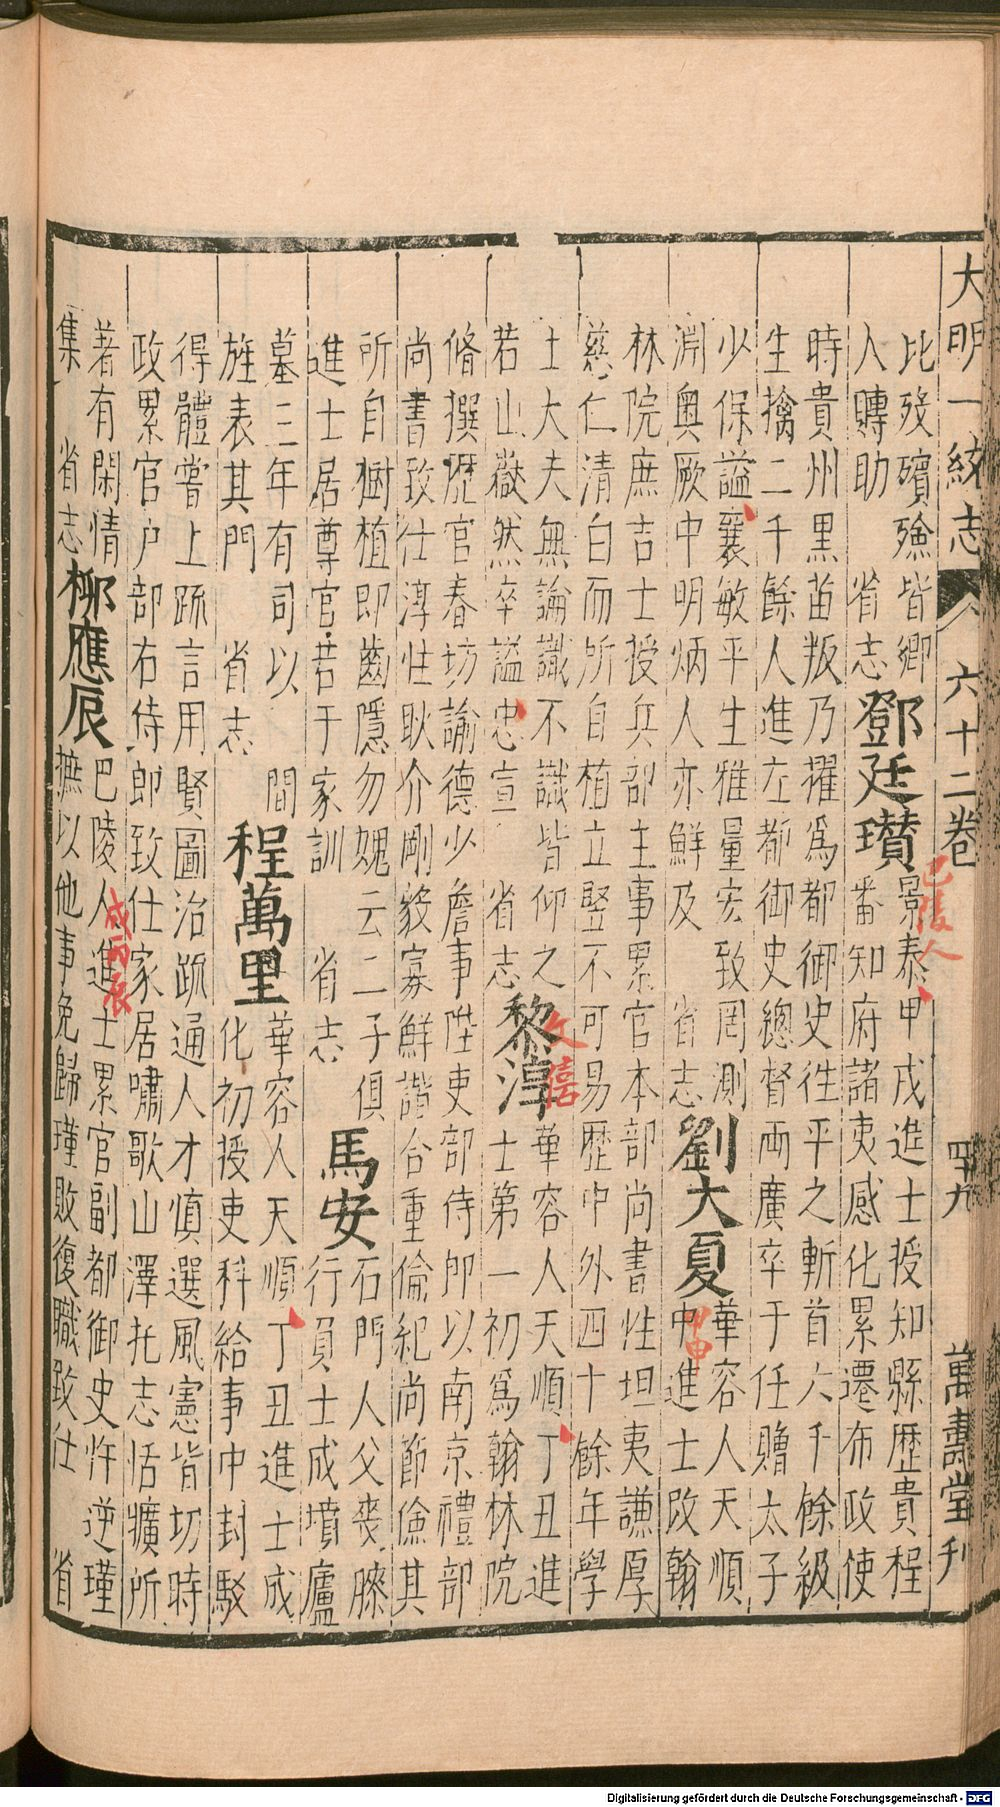 大明一統志 六十二卷 四十九 萬壽堂刊
比歿殯殮皆鄉
人賻助 省志
鄧廷瓚
景泰甲戌進士授知縣歷貴程
番知府諸夷感化累遷布政使
時貴州黑苗叛乃擢爲都御史徃平之斬首六千餘級
生擒二千餘人進左都御史總督兩廣卒于任贈太子
少保謚襄敏平生雅量宏致罔測
淵奧厥中明炳人亦鮮及 省志
劉大夏
華容人天順
甲申進士改翰
林院庶吉士授兵部主事累官本部尚書性坦夷謙厚
慈仁清白而所自植立堅不可易歷中外四十餘年學
士大夫無論識不識皆仰之
若山嶽然卒謚忠宣 省志
黎淳
文僖
華容人天順丁丑進
士第一初爲翰林院
脩撰歷官春坊諭德少詹事陞吏部侍郎以南京禮部
尚書致仕淳性耿介剛毅寡鮮諧合重倫紀尚節儉其
所自樹植即齒隱勿媿云二子俱
進士居尊官若于家訓 省志
馬安
石門人父喪滕
行負士成墳廬
墓三年有司以 間
旌表其門 省志
程萬里
華容人天順丁丑進士成
化初授吏科給事中封駁
得體嘗上疏言用賢圖治疏通人才慎選風憲皆切時
政累官户部右侍郎致仕家居嘯歌山澤托志恬獷所
著有閑情
集 省志
柳應辰
巴陵人進士累官副都御史忤逆瑾
成丙辰
摭以他事免歸瑾敗復職致仕 省
Digitalisierung gefördert durch die Deutsche Forschungsgemeinschaft - DFG